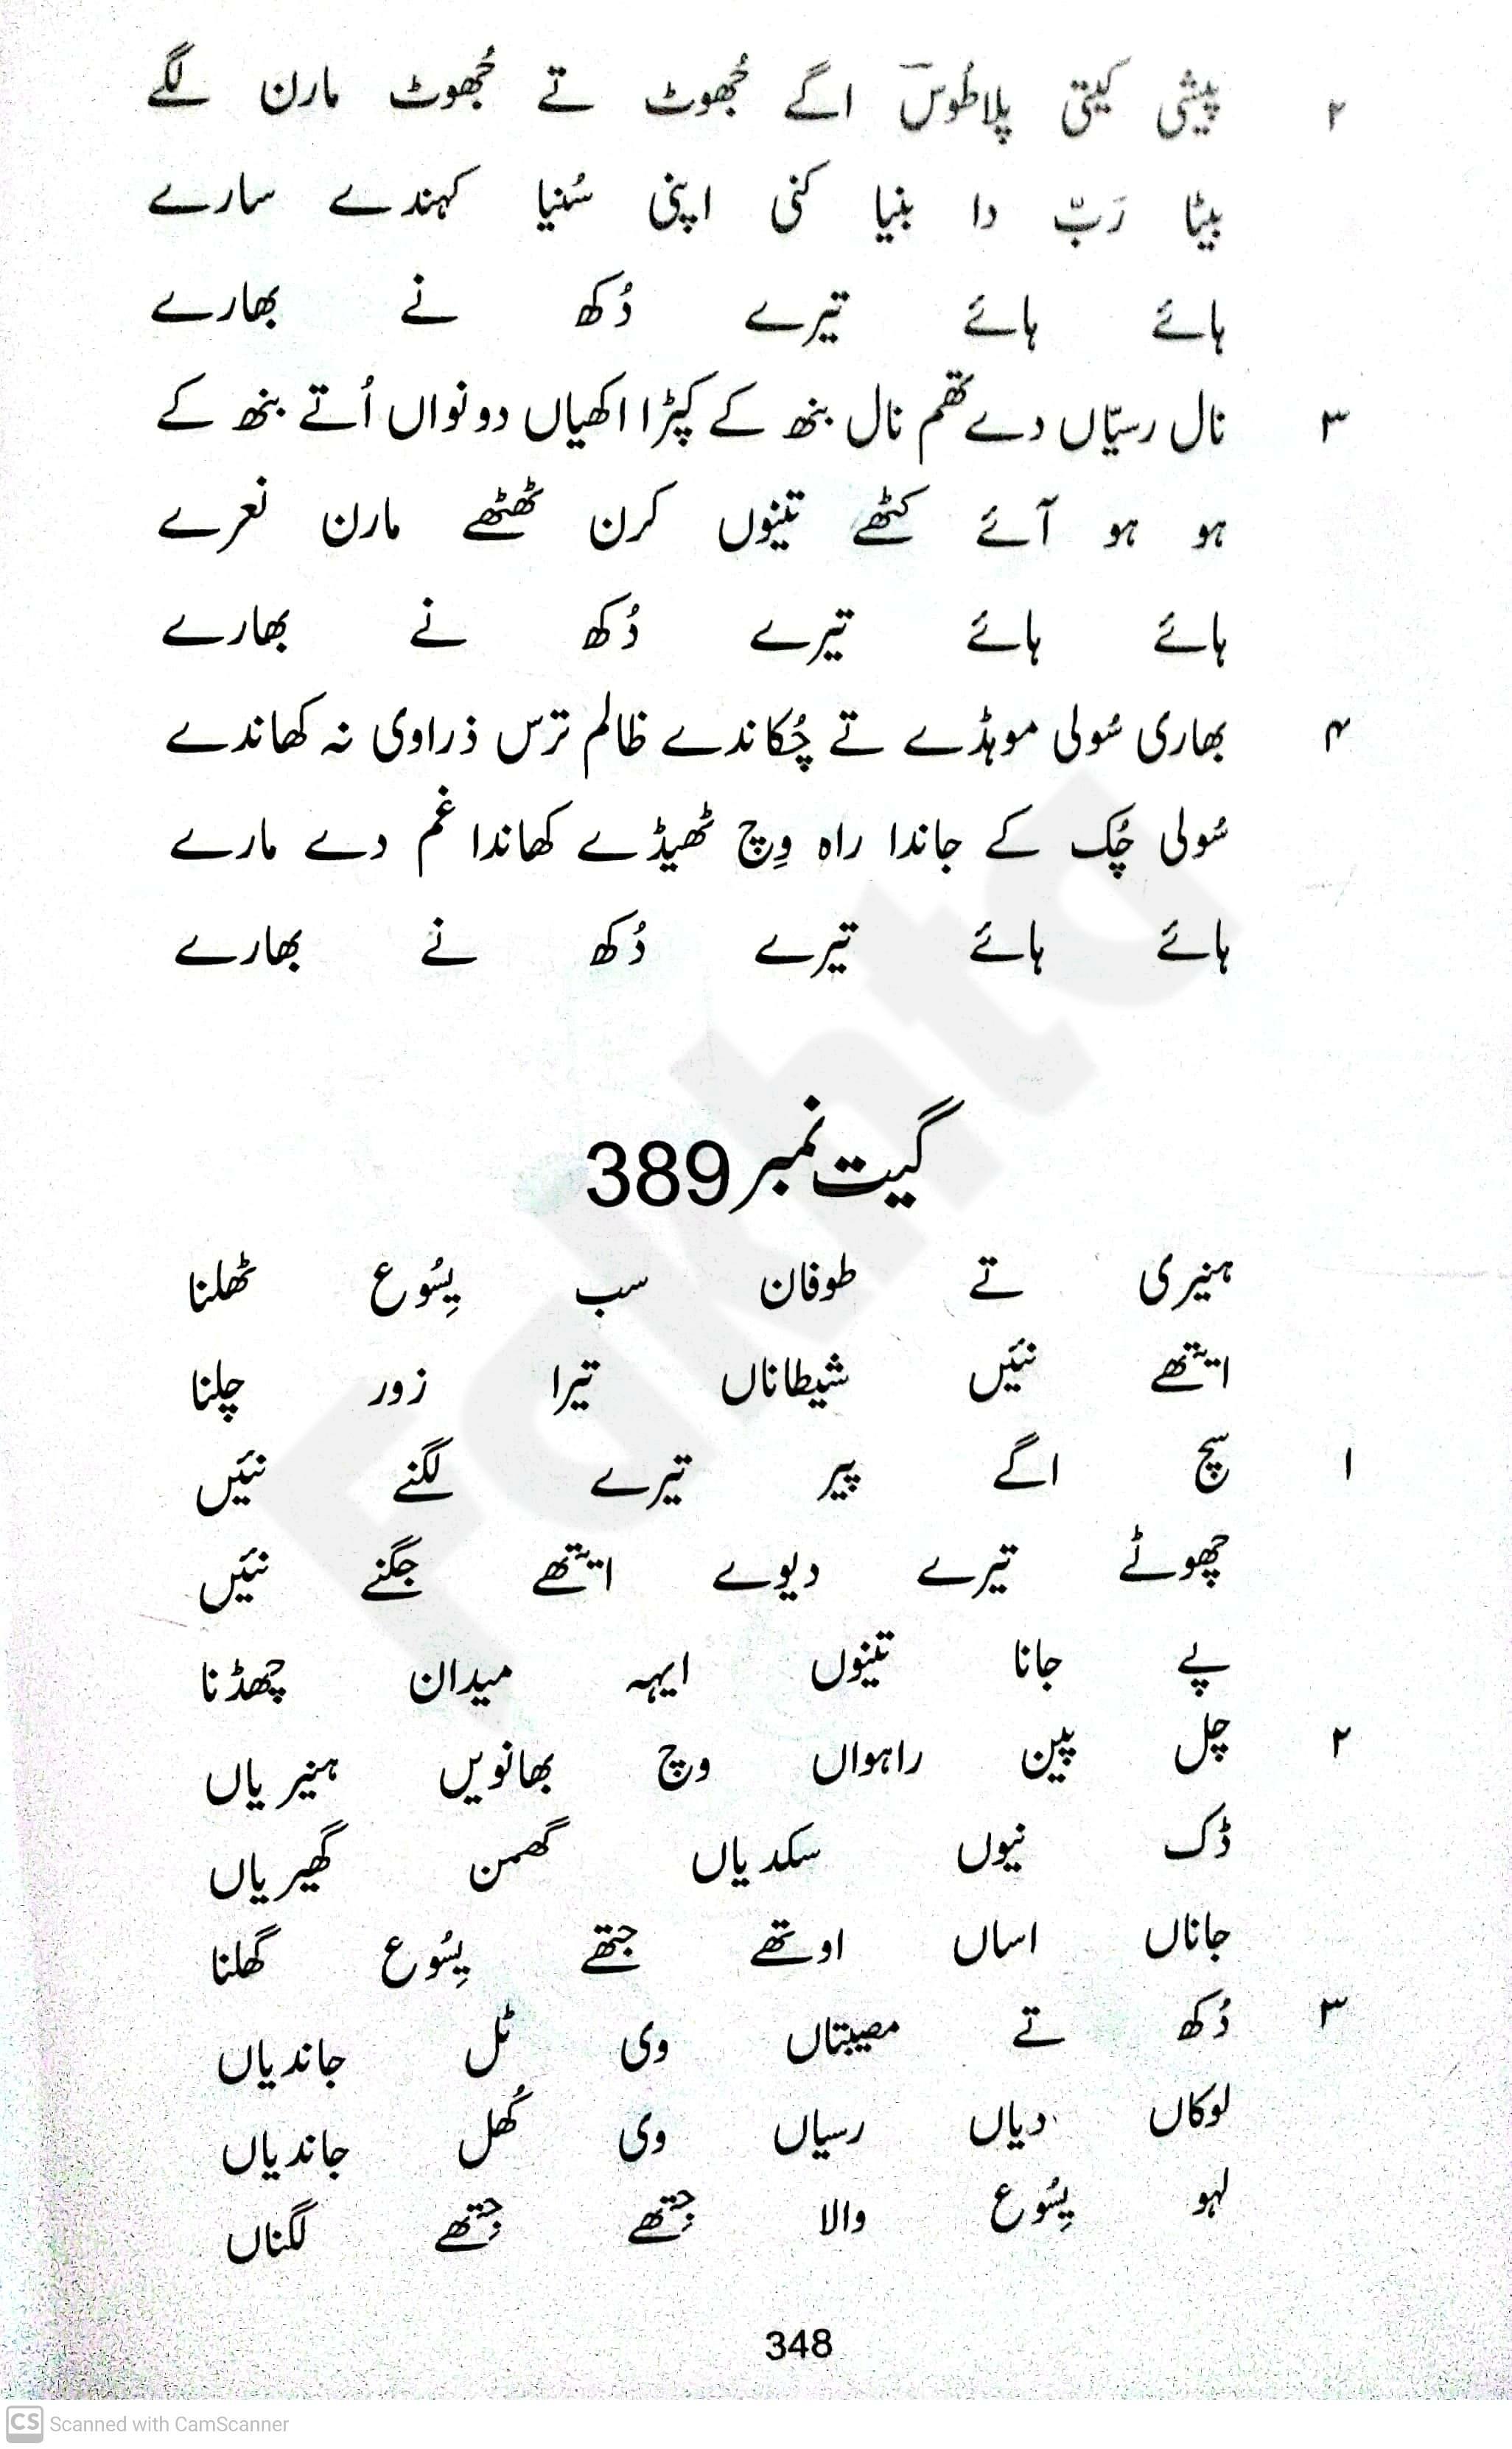 ۲ پیشی کیتی پلاطُوسؔ اگے جُھوٹ تے جُھوٹ مارن لگے
بیٹا رَبّ دا بنیا کنی اپنی سُنیا کہندے سارے
ہائے ہائے تیرے دُکھ نے بھارے
۳ نال رسیّاں دے تھم نال بنھ کے کپڑا اکھیاں دونواں اُتے بنھ کے
ہو ہو آئے کٹھے تینوں کرن ٹھٹھے مارن نعرے
ہائے ہائے تیرے دُکھ نے بھارے
۴ بھاری سُولی موہڈے تے چُکاندے ظالم ترس ذرا وی نہ کھاندے
سُولی چُک کے جاندا راہ وِچ ٹھیڈے کھاندا غم دے مارے
ہائے ہائے تیرے دُکھ نے بھارے
گیت نمبر 389
ہنیری تے طوفان سب یِسُوع ٹھلنا
ایتّھے نئیں شیطاناں تیرا زور چلنا
۱ سچ اگے پیر تیرے لگنے نئیں
چھوٹے تیرے دیوے ایتّھے جگنے نئیں
پے جانا تینوں ایہہ میدان چھڈنا
۲ چل پین راہواں وچ بھانویں ہنیریاں
ڈک نیوں سکدیاں گھمن گھیریاں
جاناں اساں اوتھے جتھے یِسُوع گھلنا
۳ دُکھ تے مصیبتاں وی ٹل جاندیاں
لوکاں دیاں رسیاں وی کُھل جاندیاں
لہو یِسُوع والا جِتّھے جِتّھے لگناں
348
CS Scanned with CamScanner
Fakhta